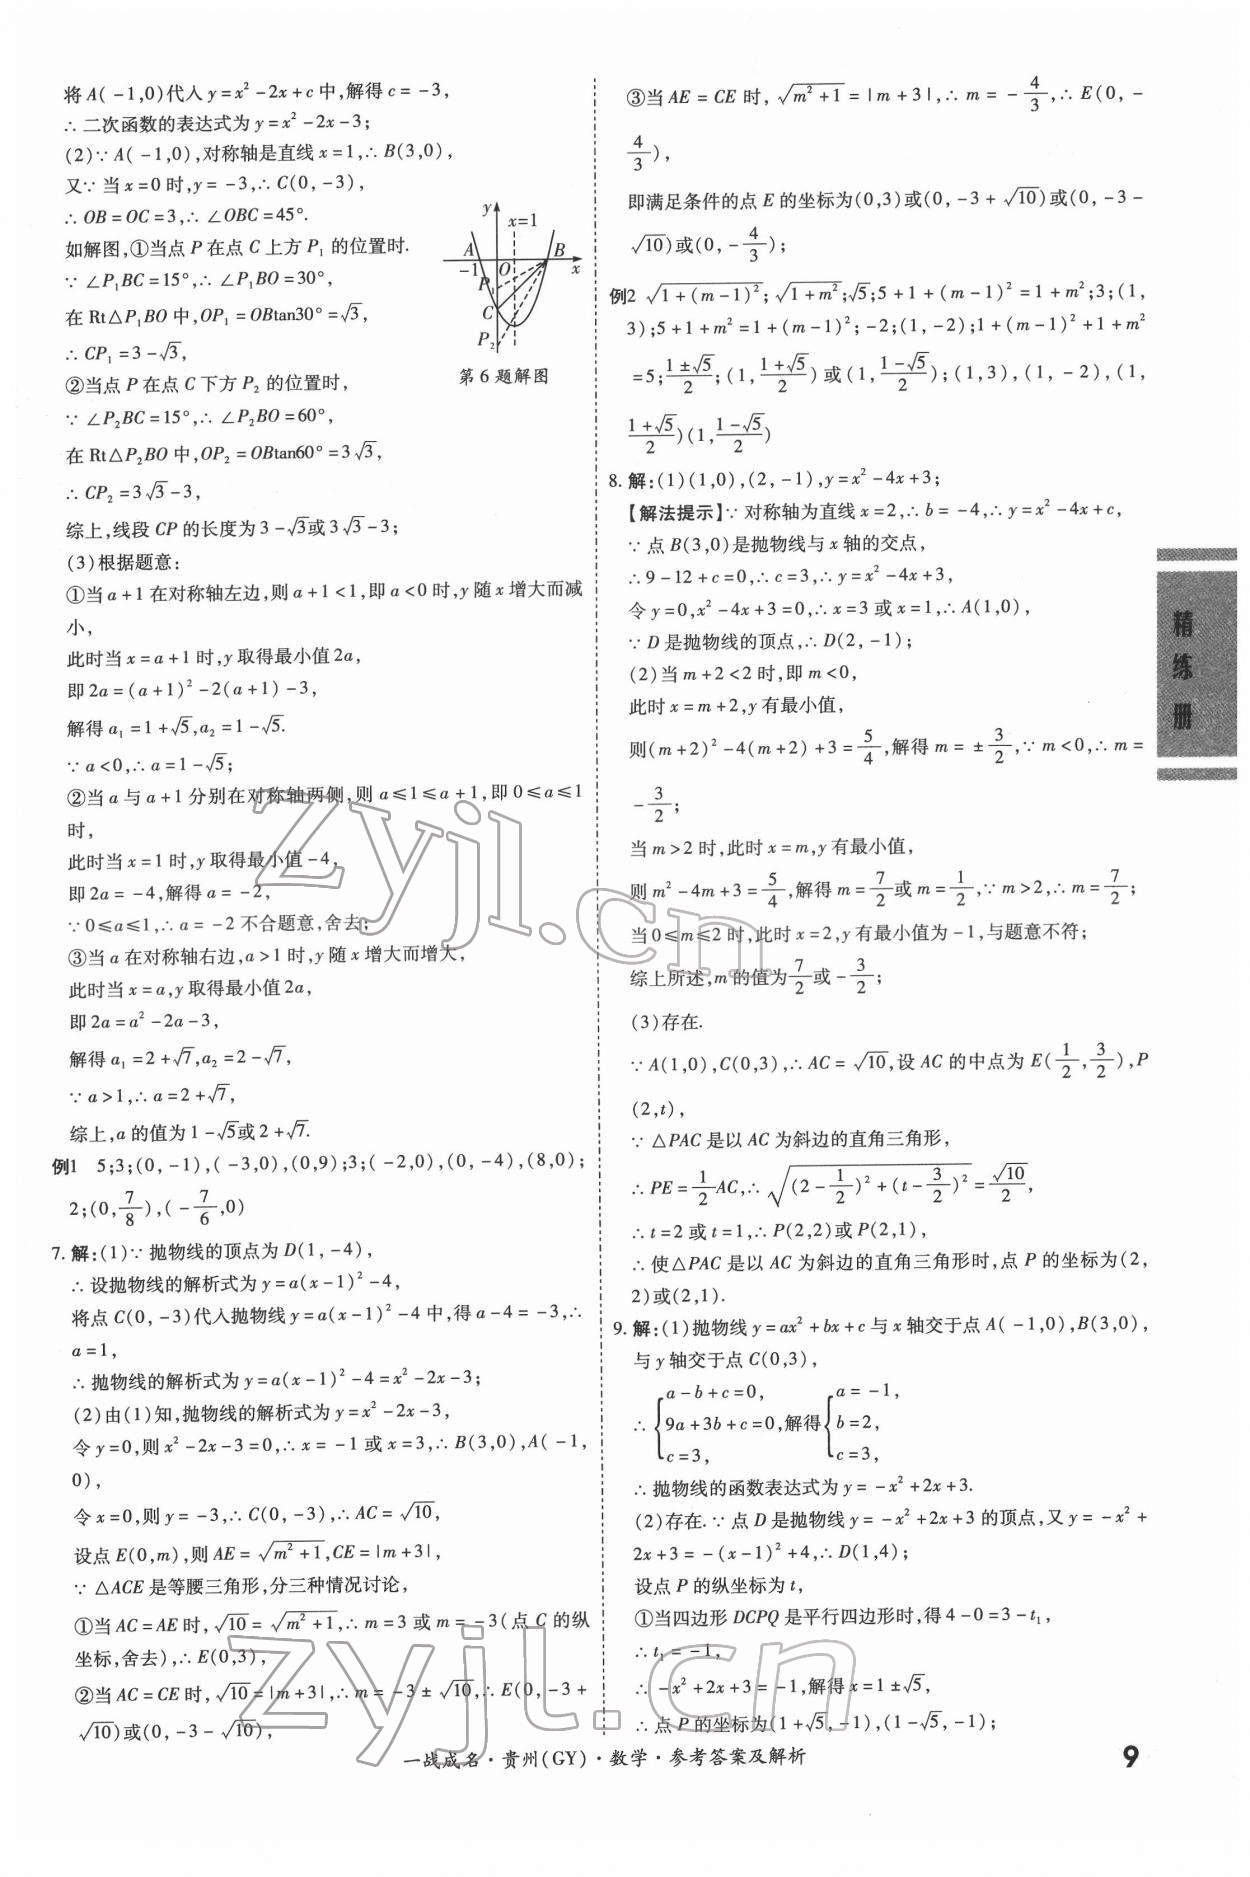 将A(-1,0)代入y=x²-2x+c中,解得c=-3,
∴二次函数的表达式为y=x²-2x-3;
(2)∵A(-1,0),对称轴是直线x=1,∴B(3,0),
又∵当x=0时,y=-3,∴C(0,-3),
∴OB=OC=3,∴∠OBC=45°.
如解图,①当点P在点C上方P₁的位置时.
∵∠P₁BC=15°,∴∠P₁BO=30°,
在Rt△P₁BO中,OP₁=OBtan30°=√3,
∴CP₁=3-√3,
②当点P在点C下方P₂的位置时,
∵∠P₂BC=15°,∴∠P₂BO=60°,
在Rt△P₂BO中,OP₂=OBtan60°=3√3,
∴CP₂=3√3-3,
综上,线段CP的长度为3-√3或3√3-3;
y
x=1
A
B
-1
O
x
P₁
C
P₂
第6题解图
(3)根据题意:
①当a+1在对称轴左边,则a+1<1,即a<0时,y随x增大而减
小,
此时当x=a+1时,y取得最小值2a,
即2a=(a+1)²-2(a+1)-3,
解得a₁=1+√5,a₂=1-√5.
∵a<0,∴a=1-√5;
②当a与a+1分别在对称轴两侧,则a≤1≤a+1,即0≤a≤1
时,
此时当x=1时,y取得最小值-4,
即2a=-4,解得a=-2,
∵0≤a≤1,∴a=-2不合题意,舍去;
③当a在对称轴右边,a>1时,y随x增大而增大,
此时当x=a,y取得最小值2a,
即2a=a²-2a-3,
解得a₁=2+√7,a₂=2-√7,
∵a>1,∴a=2+√7,
综上,a的值为1-√5或2+√7.
例1 5;3;(0,-1),(-3,0),(0,9);3;(-2,0),(0,-4),(8,0);
2;(0,7/8),(-7/6,0)
7. 解:(1)∵抛物线的顶点为D(1,-4),
∴设抛物线的解析式为y=a(x-1)²-4,
将点C(0,-3)代入抛物线y=a(x-1)²-4中,得a-4=-3,∴
a=1,
∴抛物线的解析式为y=a(x-1)²-4=x²-2x-3;
(2)由(1)知,抛物线的解析式为y=x²-2x-3,
令y=0,则x²-2x-3=0,∴x=-1或x=3,∴B(3,0),A(-1,
0),
令x=0,则y=-3,∴C(0,-3),∴AC=√10,
设点E(0,m),则AE=√(m²+1),CE=|m+3|,
∵△ACE是等腰三角形,分三种情况讨论,
①当AC=AE时,√10=√(m²+1),∴m=3或m=-3(点C的纵
坐标,舍去),∴E(0,3),
②当AC=CE时,√10=|m+3|,∴m=-3±√10,∴E(0,-3+
√10)或(0,-3-√10),
③当AE=CE时,√(m²+1)=|m+3|,∴m=-4/3,∴E(0,-
4/3),
即满足条件的点E的坐标为(0,3)或(0,-3+√10)或(0,-3-
√10)或(0,-4/3);
例2 √(1+(m-1)²);√(1+m²);√5;5+1+(m-1)²=1+m²;3;(1,
3);5+1+m²=1+(m-1)²;-2;(1,-2);1+(m-1)²+1+m²
=5;(1±√5)/2;(1,(1+√5)/2)或(1,(1-√5)/2);(1,3),(1,-2),(1,
(1+√5)/2)(1,(1-√5)/2)
8. 解:(1)(1,0),(2,-1),y=x²-4x+3;
【解法提示】∵对称轴为直线x=2,∴b=-4,∴y=x²-4x+c,
∵点B(3,0)是抛物线与x轴的交点,
∴9-12+c=0,∴c=3,∴y=x²-4x+3,
令y=0,x²-4x+3=0,∴x=3或x=1,∴A(1,0),
∵D是抛物线的顶点,∴D(2,-1);
(2)当m+2<2时,即m<0,
此时x=m+2,y有最小值,
则(m+2)²-4(m+2)+3=5/4,解得m=±3/2,∵m<0,∴m=
-3/2;
当m>2时,此时x=m,y有最小值,
则m²-4m+3=5/4,解得m=7/2或m=1/2,∵m>2,∴m=7/2;
当0≤m≤2时,此时x=2,y有最小值为-1,与题意不符;
综上所述,m的值为7/2或-3/2;
(3)存在.
∵A(1,0),C(0,3),∴AC=√10,设AC的中点为E(1/2,3/2),P
(2,t),
∵△PAC是以AC为斜边的直角三角形,
∴PE=1/2AC,∴√((2-1/2)²+(t-3/2)²)=√10/2,
∴t=2或t=1,∴P(2,2)或P(2,1),
∴使△PAC是以AC为斜边的直角三角形时,点P的坐标为(2,
2)或(2,1).
9. 解:(1)抛物线y=ax²+bx+c与x轴交于点A(-1,0),B(3,0),
与y轴交于点C(0,3),
∴{a-b+c=0, 9a+3b+c=0, c=3, 解得{a=-1, b=2, c=3,
∴抛物线的函数表达式为y=-x²+2x+3.
(2)存在.∵点D是抛物线y=-x²+2x+3的顶点,又y=-x²+
2x+3=-(x-1)²+4,∴D(1,4);
设点P的纵坐标为t,
①当四边形DCPQ是平行四边形时,得4-0=3-t₁,
∴t₁=-1,
∴-x²+2x+3=-1,解得x=1±√5,
∴点P的坐标为(1+√5,-1),(1-√5,-1);
精练册
一战成名·贵州(GY)·数学·参考答案及解析
9
zyjl.cn
zyjl.cn